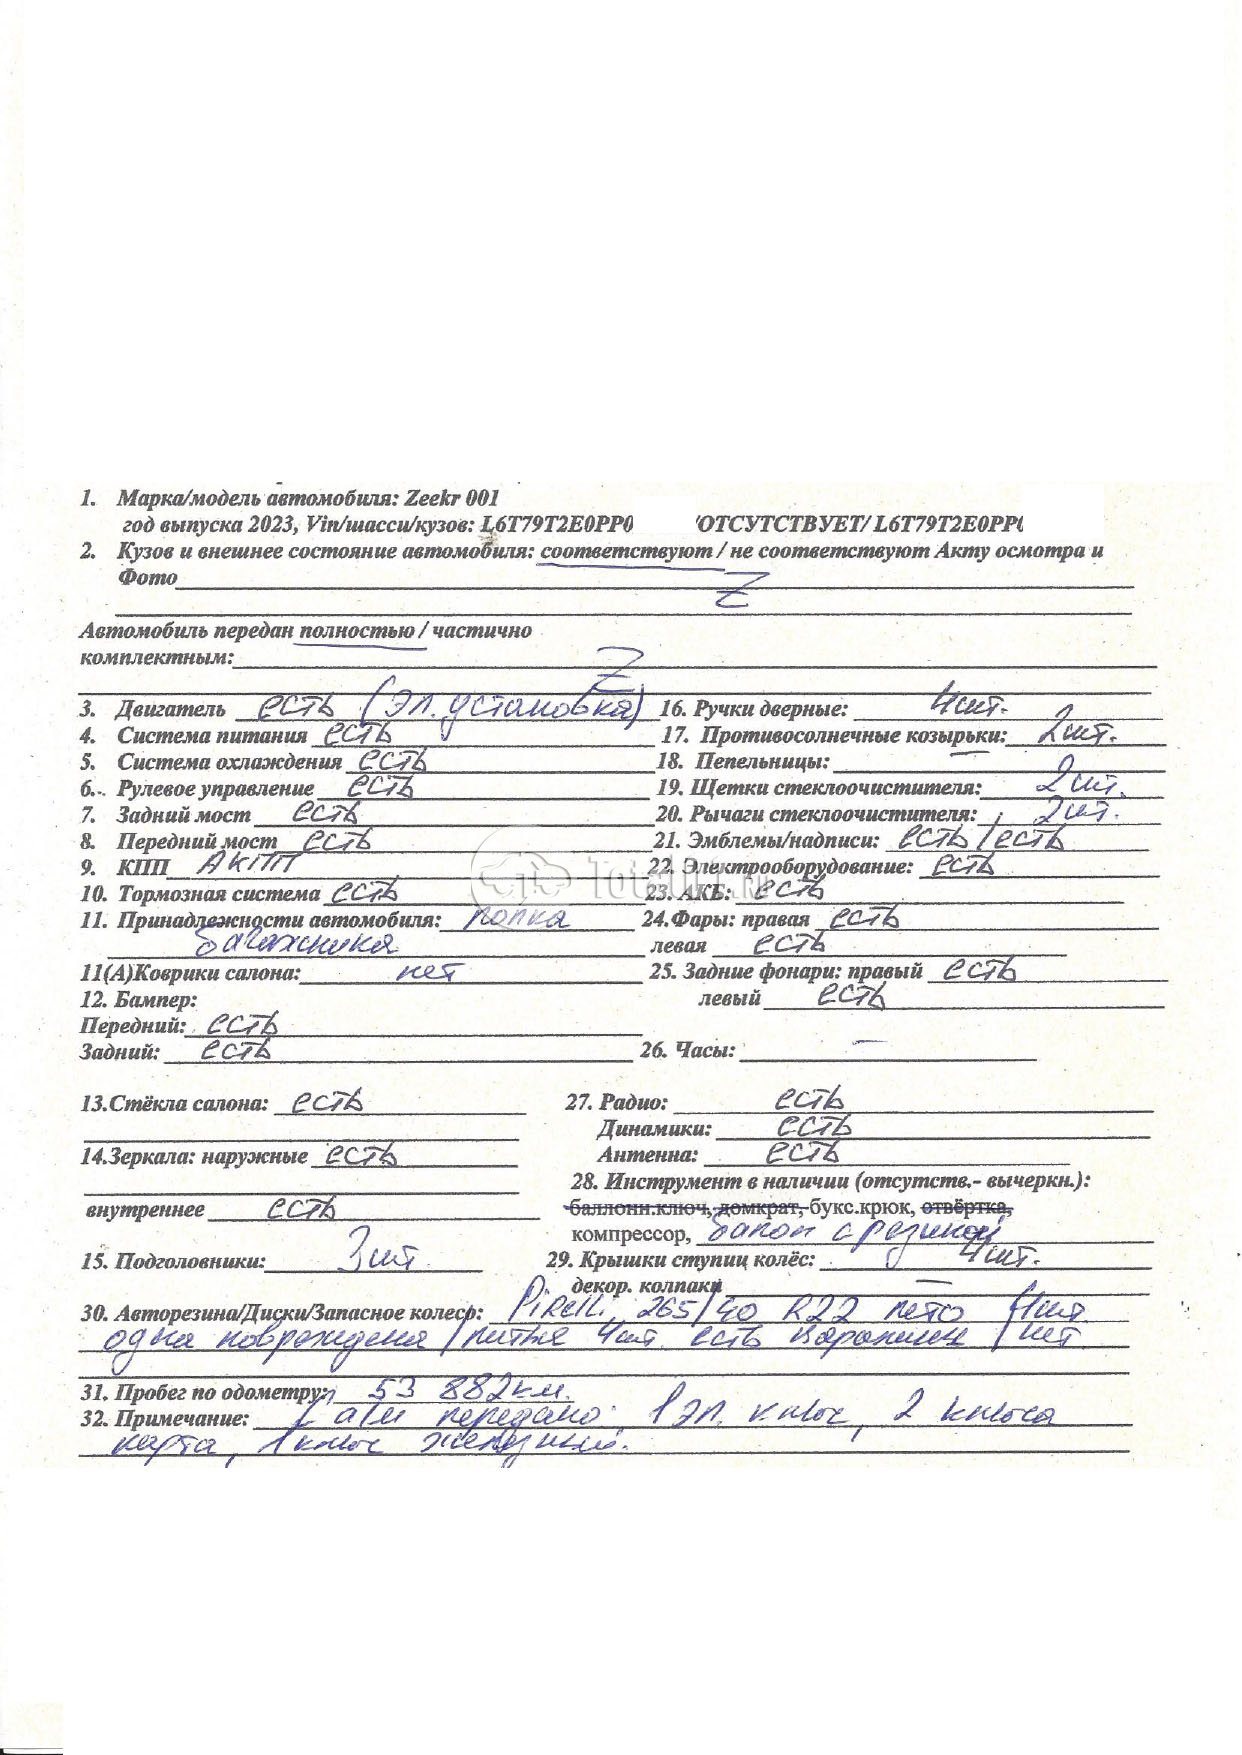 1. Марка/модель автомобиля: Zeekr 001
год выпуска 2023, Vin/шасси/кузов: L6T79T2E0PP0 /ОТСУТСТВУЕТ/ L6T79T2E0PP0
2. Кузов и внешнее состояние автомобиля: соответствуют / не соответствуют Акту осмотра и
Фото Z
Автомобиль передан полностью / частично
комплектным: Z
3. Двигатель есть (эл. установка) 16. Ручки дверные: 4шт.
4. Система питания есть 17. Противосолнечные козырьки: 2шт.
5. Система охлаждения есть 18. Пепельницы: —
6. Рулевое управление есть 19. Щетки стеклоочистителя: 2шт.
7. Задний мост есть 20. Рычаги стеклоочистителя: 2шт.
8. Передний мост есть 21. Эмблемы/надписи: есть/есть
9. КПП АКПП 22. Электрооборудование: есть
10. Тормозная система есть 23. АКБ: есть
11. Принадлежности автомобиля: полка 24.Фары: правая есть
багажника левая есть
11(А)Коврики салона: нет 25. Задние фонари: правый есть
12. Бампер: левый есть
Передний: есть
Задний: есть 26. Часы: —
13.Стёкла салона: есть 27. Радио: есть
Динамики: есть
14.Зеркала: наружные есть Антенна: есть
28. Инструмент в наличии (отсутств.- вычеркн.):
внутреннее есть баллонн.ключ, домкрат, букс.крюк, отвёртка,
компрессор, балон с резинкой
15. Подголовники: 3шт. 29. Крышки ступиц колёс: 4шт.
декор. колпаки —
30. Авторезина/Диски/Запасное колесо: Pirelli 265/40 R22 лето 4шт.
одна повреждена / литые 4шт. есть царапины / нет
31. Пробег по одометру: 53 882км.
32. Примечание: С а/м передано: 1 эл. ключ, 2 ключа
карта, 1 ключ железный.